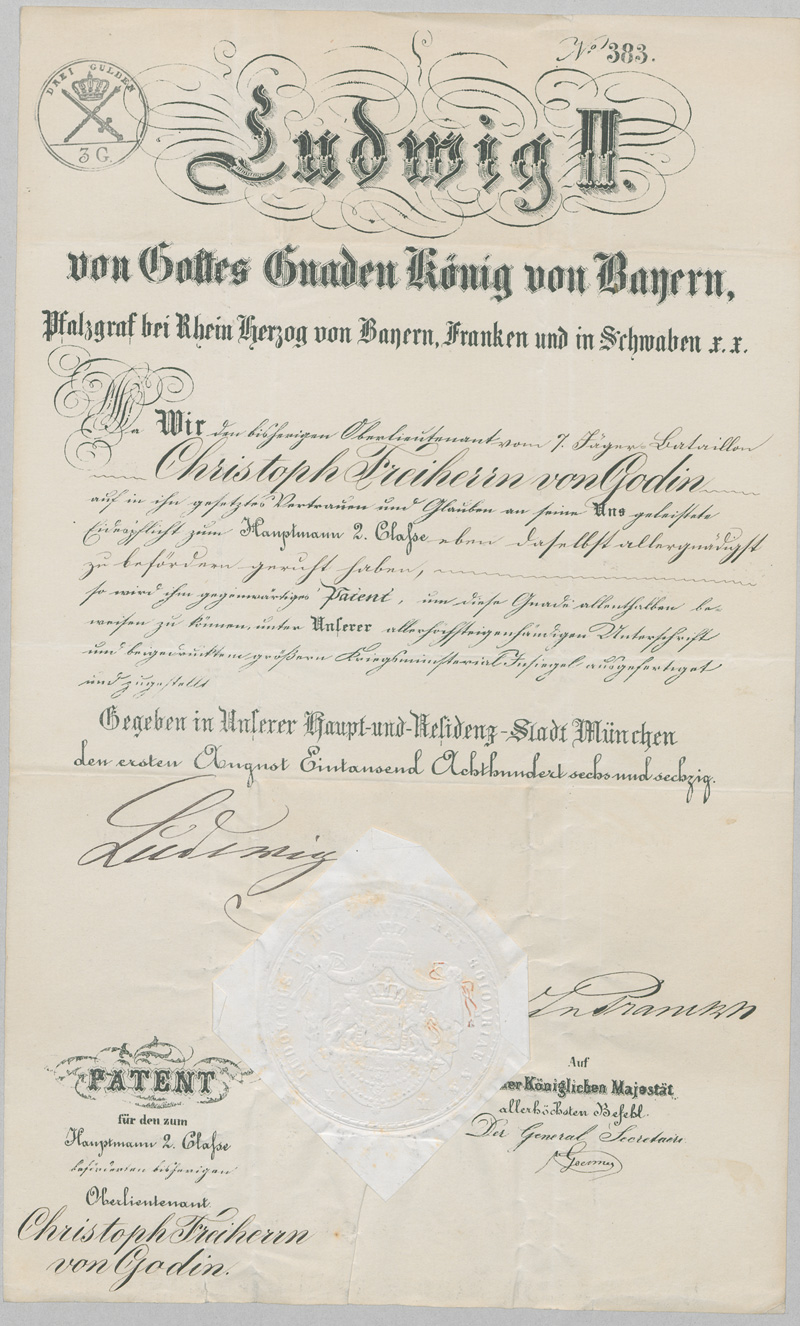 No 383.
DREI GULDEN
3 G.
Ludwig II.
von Gottes Gnaden König von Bayern,
Pfalzgraf bei Rhein Herzog von Bayern, Franken und in Schwaben x. x.
Da Wir den bisherigen Oberlieutenant vom 7. Jäger-Bataillon
Christoph Freiherrn von Godin
auf in ihn gesetztes Vertrauen und Glauben an seine Uns geleistete
Eidespflicht zum Hauptmann 2. Classe eben daselbst allergnädigst
zu befördern geruht haben,
so wird ihm gegenwärtiges Patent, um diese Gnade allenthalben be-
weisen zu können, unter Unserer allerhöchsteigenhändigen Unterschrift
und beigedrucktem größern Kriegsministerial-Insiegel ausgefertiget
und zugestellt
Gegeben in Unserer Haupt-und-Residenz-Stadt München
den ersten August Eintausend Achthundert sechs und sechzig.
Ludwig
PATENT
für den zum
Hauptmann 2. Classe
beförderten bisherigen
Oberlieutenant
Christoph Freiherrn
von Godin.
Auf
der Königlichen Majestät
allerhöchsten Befehl.
Der General Secretaire